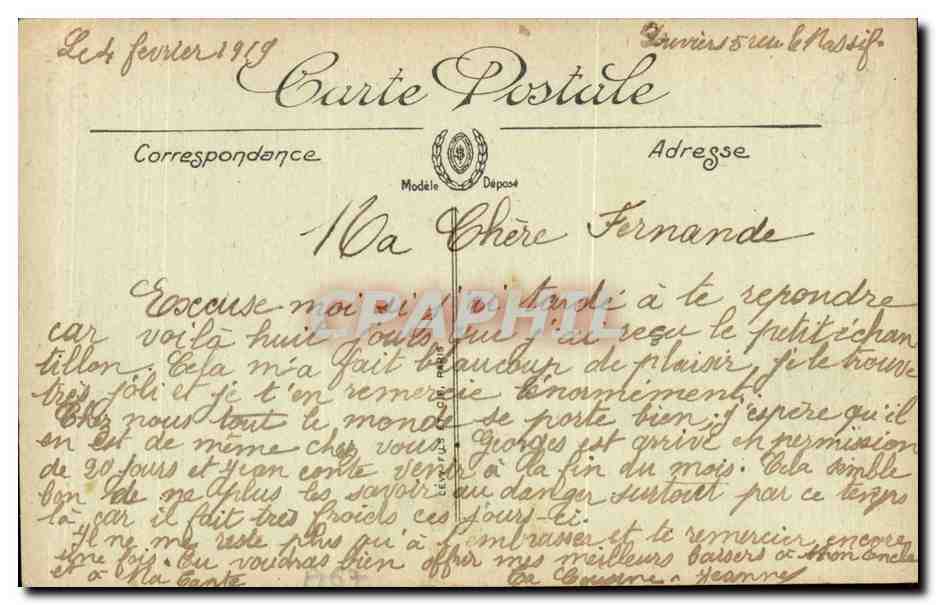 Le 4 fevrier 1919
Louviers 5 rue le Massif.
Carte Postale
Correspondance
Adresse
Modèle Déposé
Ma Chère Fernande
Excuse moi si j'ai tardé à te repondre
car voilà huit jours que j'ai reçu le petit échan
tillon. Cela m'a fait beaucoup de plaisir, je le trouve
très joli et je t'en remercie énormément.
Chez nous tout le monde se porte bien, j'espère qu'il
en est de même chez vous. Georges est arrivé en permission
de 20 jours et Jean conte venir à la fin du mois. Cela semble
bon de ne plus les savoir au danger surtout par ce temps
là car il fait tres froids ces jours-ci.
Il ne me reste plus qu'à t'embrasser et te remercier encore
une fois. Tu voudras bien offrir mes meilleurs baisers à Mon Oncle
et à Ma Tante
Ta Cousine Jeanne
LÉVY FILS ET CIE, PARIS
CPAPHIL